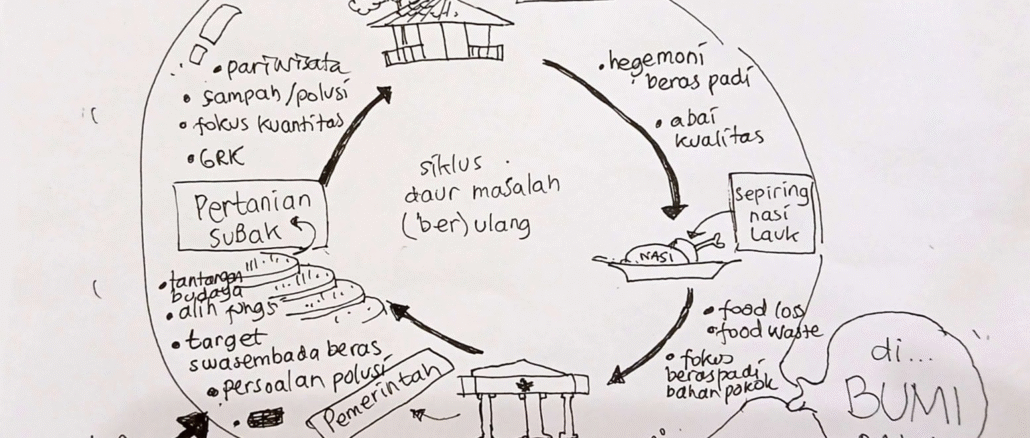 • pariwisata
• sampah/polusi
• fokus kuantitas
• GRK
Pertanian
SUBAK
• tantangan
budaya
• alih fungsi
• target
swasembada beras
• persoalan polusi
siklus
daur masalah
(ber)ulang
• hegemoni
beras padi
• abai
kualitas
sepiring
nasi
lauk
NASI
• food loss
• food waste
• fokus
beras padi
bahan pokok
Pemerintah
di...
BUMI